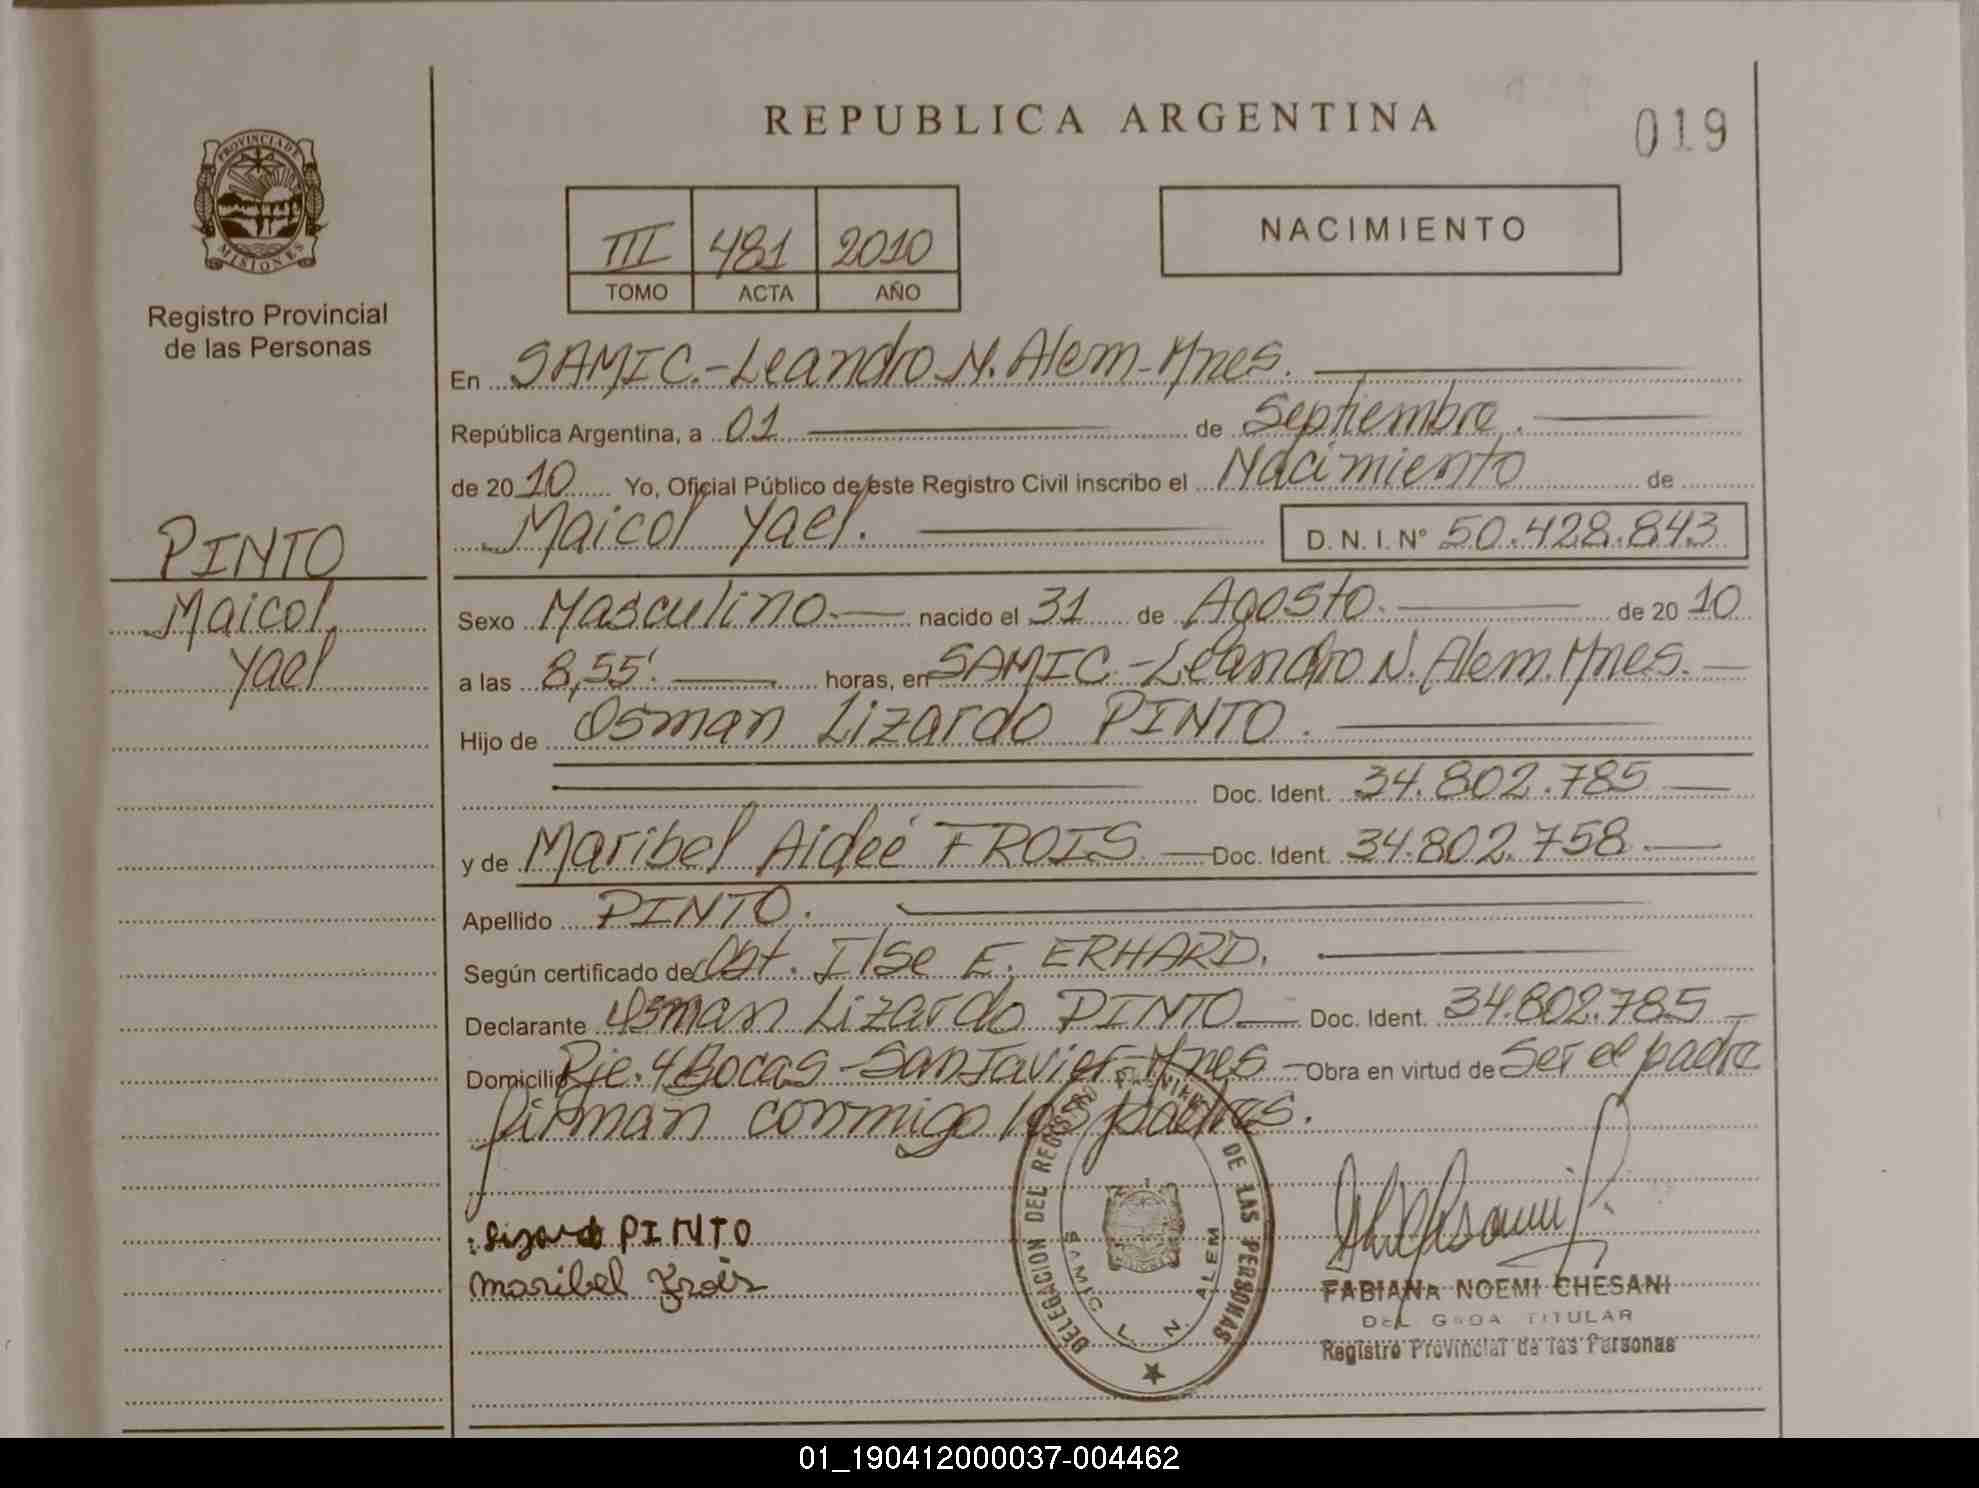 REPUBLICA ARGENTINA
019
PROVINCIA DE
MISIONES
Registro Provincial
de las Personas
III 481 2010
TOMO ACTA AÑO
NACIMIENTO
En SAMIC.-Leandro N. Alem-Mnes.
República Argentina, a 01 de Septiembre.
de 2010 Yo, Oficial Público de este Registro Civil inscribo el Nacimiento de
Maicol Yael. D. N. I. N° 50.428.843
PINTO
Maicol
Yael
Sexo Masculino nacido el 31 de Agosto. de 2010
a las 8,55'. horas, en SAMIC.-Leandro N. Alem. Mnes.
Hijo de Osman Lizardo PINTO.
Doc. Ident. 34.802.785
y de Maribel Aideé FROIS Doc. Ident. 34.802.758
Apellido PINTO.
Según certificado de Obt. Ilse E. ERHARD.
Declarante Osman Lizardo PINTO Doc. Ident. 34.802.785
Domicilio Pje. 4 Bocas-San Javier-Mnes Obra en virtud de Ser el padre
firman conmigo los padres.
Lizardo PINTO
maribel Frois
DELEGACION DEL REGISTRO PROVINCIAL DE LAS PERSONAS
SAMIC L. N. ALEM
FABIANA NOEMI CHESANI
TITULAR
Registro Provincial de las Personas
01_190412000037-004462